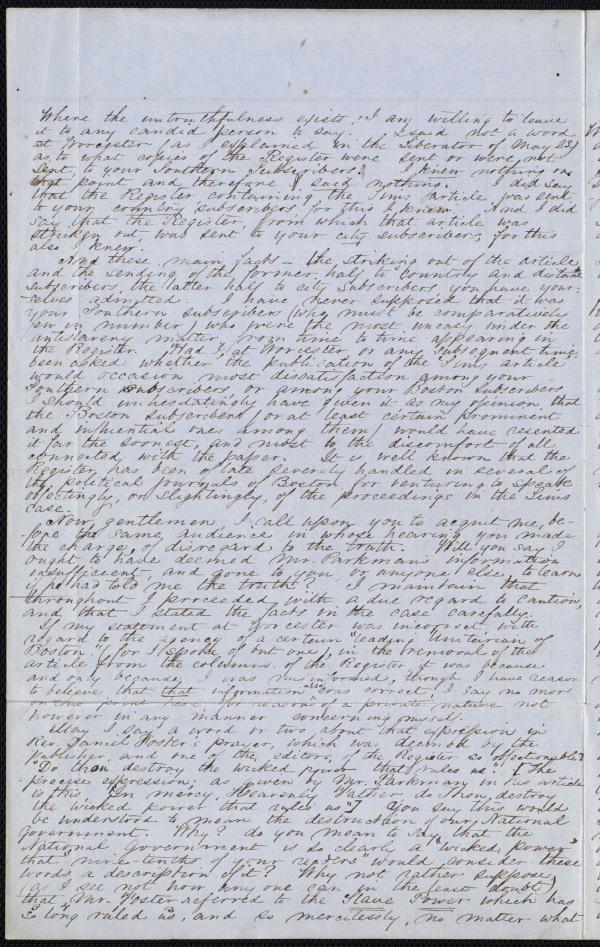 Where the untruthfulness exists, I am willing to leave
it to any candid person to say. I said not a word
at Worcester (as I explained in the Liberator of May 23)
as to what copies of the Register were sent or were not
sent, to your Southern Subscribers. I knew nothing on
that point and therefore I said nothing. I did say
that the Register containing the Sims article was sent
to your country subscribers, for this I knew. And I did
say that the Register from which that article was
stricken out was sent to your city subscribers, for this
also I knew.
And these main facts — the striking out of the article,
and the sending of the former half to country and distant
subscribers, the latter half to city subscribers, you have your-
selves admitted. I have never supposed that it was
your Southern subscribers (who must be comparatively
few in number) who were the most uneasy under the
antislavery matter from time to time appearing in
the Register. Had I, at Worcester or any subsequent time,
been asked whether the publication of the Sims article
would occasion most dissatisfaction among your
Southern subscribers or among your Boston subscribers
I should unhesitatingly have given it as my opinion that
the Boston subscribers (or at least certain prominent
and influential ones among them) would have resented
it far the soonest, and most to the discomfort of all
connected with the paper. It is well known that the
Register has been of late severely handled in several of
the political journals of Boston for venturing to speak
objectingly, or slightingly, of the proceedings in the Sims
case.
Now, gentlemen, I call upon you to acquit me, be-
fore the same audience in whose hearing you made
the charge, of disregard to the truth. Will you say I
ought to have deemed Mr. Parkman's information
insufficient, and gone to you or anyone else to learn
if he had told me the truth? I maintain that
throughout I proceeded with a due regard to caution,
and that I stated the facts in the case carefully.
If my statement at Worcester was incorrect with
regard to the agency of a certain "leading Unitarian of
Boston" (for I spoke of but one), in the removal of the
article from the columns of the Register, it was because
and only because I was misinformed, though I have reason
to believe that that information also was correct. I say no more
on this point here for reasons of a private nature not
however in any manner concerning myself.
May I say a word or two about that expression in
Rev. Daniel Foster's prayer, which was deemed by the
publisher, and one of the editors, of the Register so objectionable?
"Do thou destroy the wicked power that rules us." [The
precise expression, as given by Mr. Parkman in his article
is this "In mercy, Heavenly Father, do Thou destroy
the wicked power that rules us"] You say this would
be understood to mean the destruction of our National
government. Why? do you mean to say that the
National Government is so clearly a "wicked power"
that "nine-tenths of your readers" would consider these
words a description of it? Why not rather suppose
(as I see not how any one can in the least doubt)
that Mr. Foster referred to the Slave Power which has
so long ruled us, and so mercilessly, no matter what